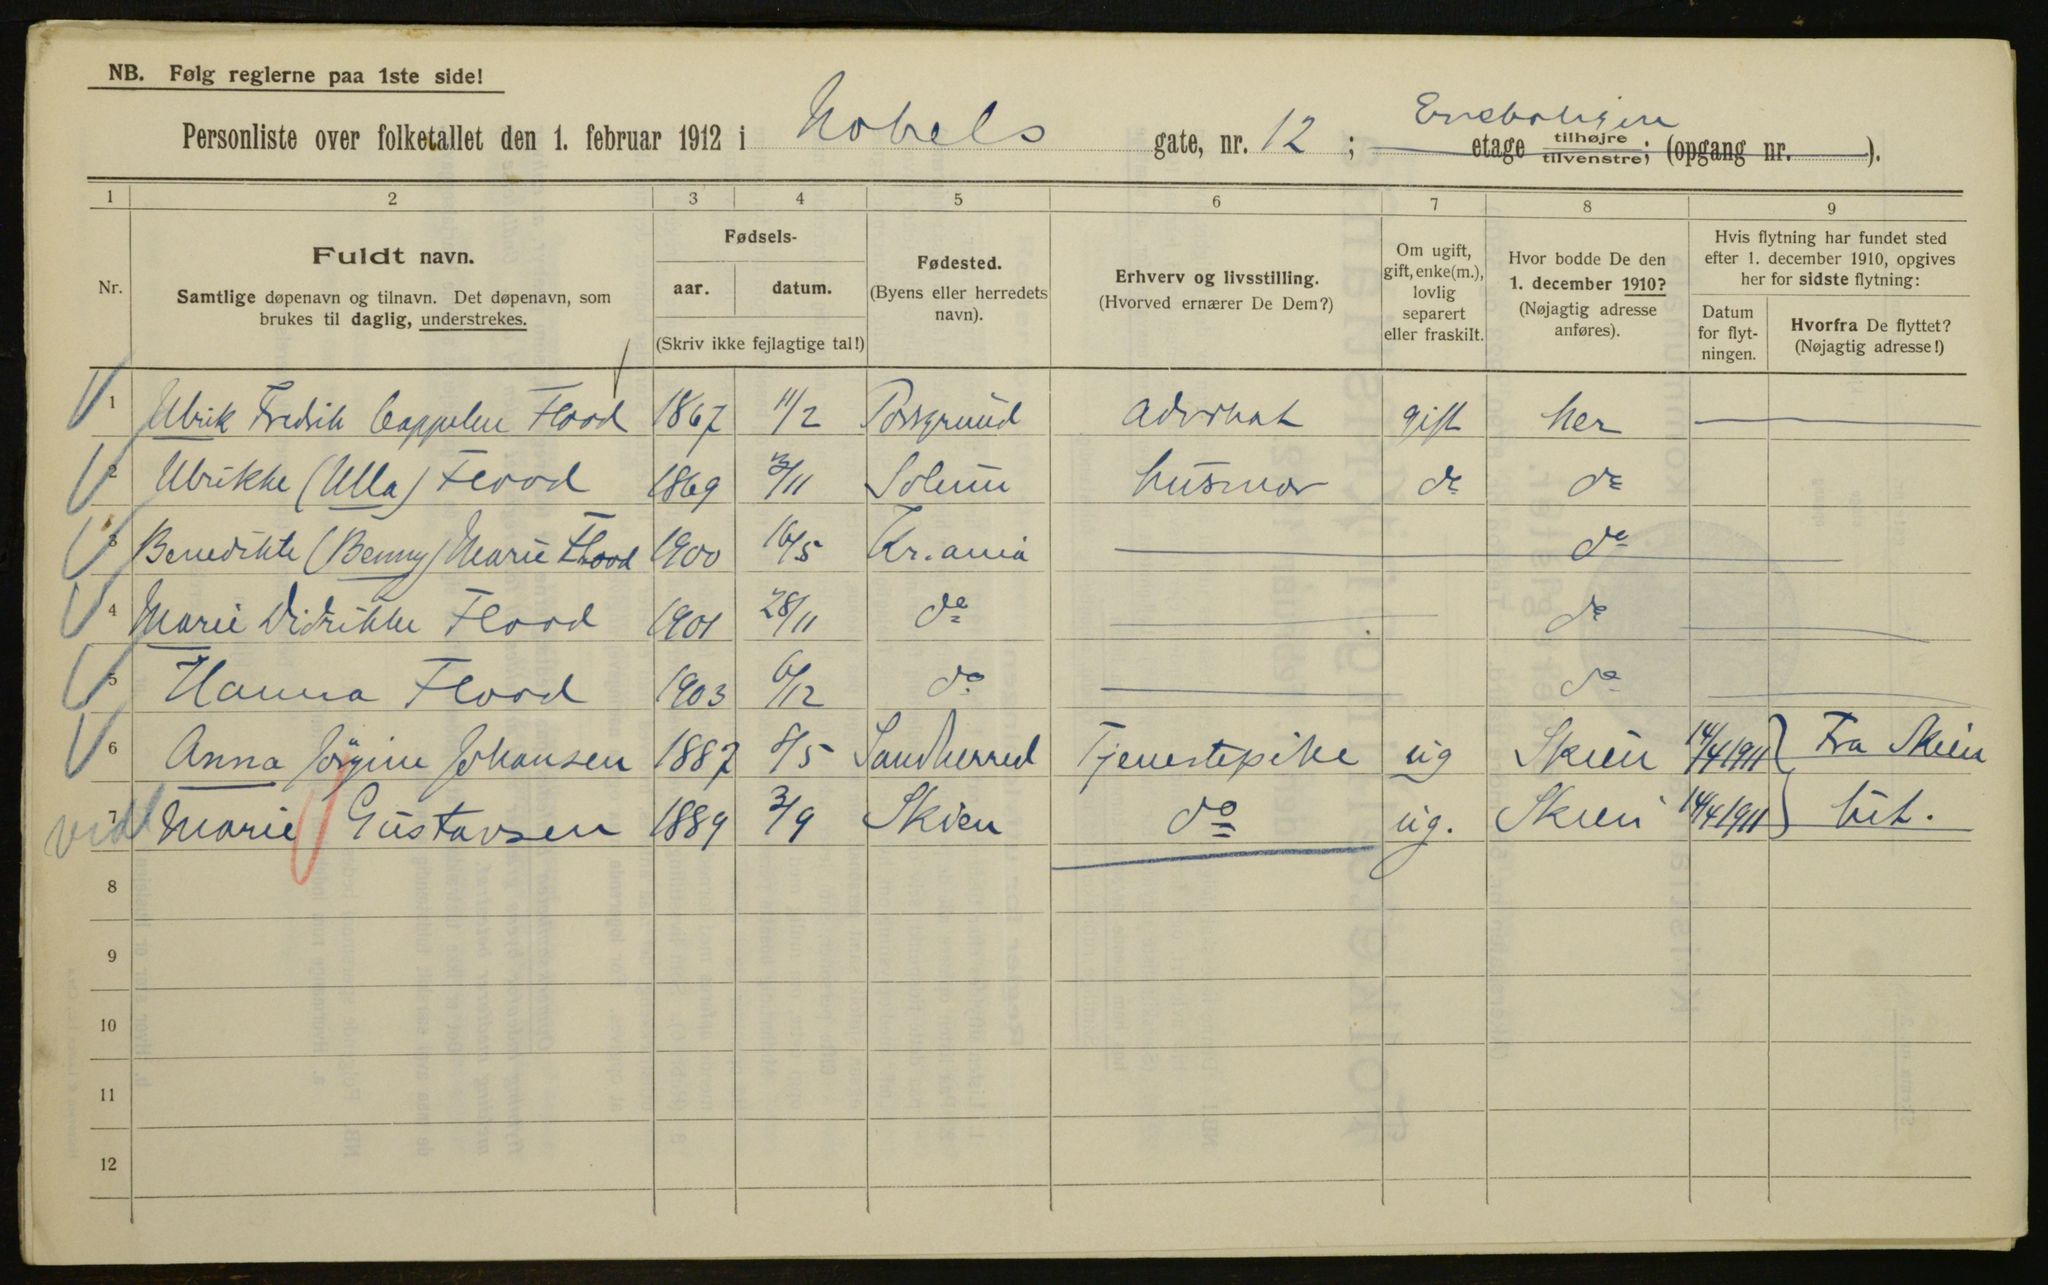 NB. Følg reglerne paa 1ste side!
Eneboligen
Personliste over folketallet den 1. februar 1912 i Nobels gate, nr. 12 ; etage tilhøjre tilvenstre; (opgang nr. ).
1 2 3 4 5 6 7 8 9
Nr.
Fuldt navn.
Samtlige døpenavn og tilnavn. Det døpenavn, som
brukes til daglig, understrekes.
Fødsels-
aar. datum.
(Skriv ikke fejlagtige tal!)
Fødested.
(Byens eller herredets
navn).
Erhverv og livsstilling.
(Hvorved ernærer De Dem?)
Om ugift,
gift, enke(m.),
lovlig
separert
eller fraskilt.
Hvor bodde De den
1. december 1910?
(Nøjagtig adresse
anføres).
Hvis flytning har fundet sted
efter 1. december 1910, opgives
her for sidste flytning:
Datum
for flyt-
ningen.
Hvorfra De flyttet?
(Nøjagtig adresse!)
1 Ulrik Fredrik Cappelen Flood 1867 11/2 Porsgrund Advokat gift her
2 Ulrikke (Ulla) Flood 1869 /11 Solum husmor do do
3 Benedikte (Benny) Marie Flood 1900 16/5 Kr.ania do
4 Marie Didrikke Flood 1901 28/11 do do
5 Hanna Flood 1903 6/12 do do
6 Anna Jørgine Johansen 1887 8/5 Sandherred Tjenestepike ug Skien 14/4 1911 Fra Skien
7 Marie Gustavsen 1889 3/9 Skien do ug. Skien 14/4 1911 hit.
8
9
10
11
12